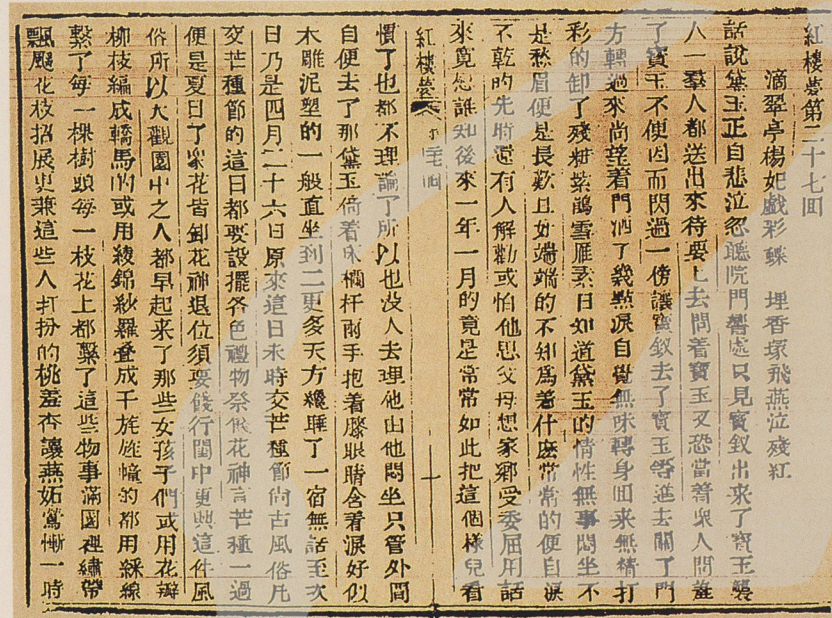 紅樓夢第二十七回
滴翠亭楊妃戲彩蝶　埋香塚飛燕泣殘紅
話說黛玉正自悲泣忽聽院門響處只見寶釵出來了寶玉襲
人一羣人都送出來待要上去問着寶玉又恐當着衆人問羞
了寶玉不便因而閃過一傍讓寶釵去了寶玉等進去關了門
方轉過來尚望着門洒了幾點淚自覺無味轉身回來無精打
彩的卸了殘粧紫鵑雪雁素日知道黛玉的情性無事悶坐不
是愁眉便是長歎且好端端的不知爲着什麽常常的便自淚
不乾的先時還有人解勸或怕他思父母想家鄉受委屈用話
來寬慰誰知後來一年一月的竟是常常如此把這個樣兒看
紅樓夢　第　回
十一
慣了也都不理論了所以也没人去理他由他悶坐只管外間
自便去了那黛玉倚着床欄杆兩手抱着膝眼睛含着淚好似
木雕泥塑的一般直坐到二更多天方纔睡了一宿無話至次
日乃是四月二十六日原來這日未時交芒種節尚古風俗凡
交芒種節的這日都要設擺各色禮物祭餞花神言芒種一過
便是夏日了衆花皆卸花神退位須要餞行閨中更興這件風
俗所以大觀園中之人都早起來了那些女孩子們或用花瓣
柳枝編成轎馬的或用綾錦紗羅叠成千旄旌幢的都用綵線
繫了每一棵樹頭每一枝花上都繫了這些物事滿園裡繡帶
飄颻花枝招展更兼這些人打扮的桃羞杏讓燕妬鶯慚一時